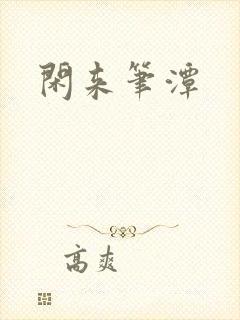 閑来筆潭
高爽